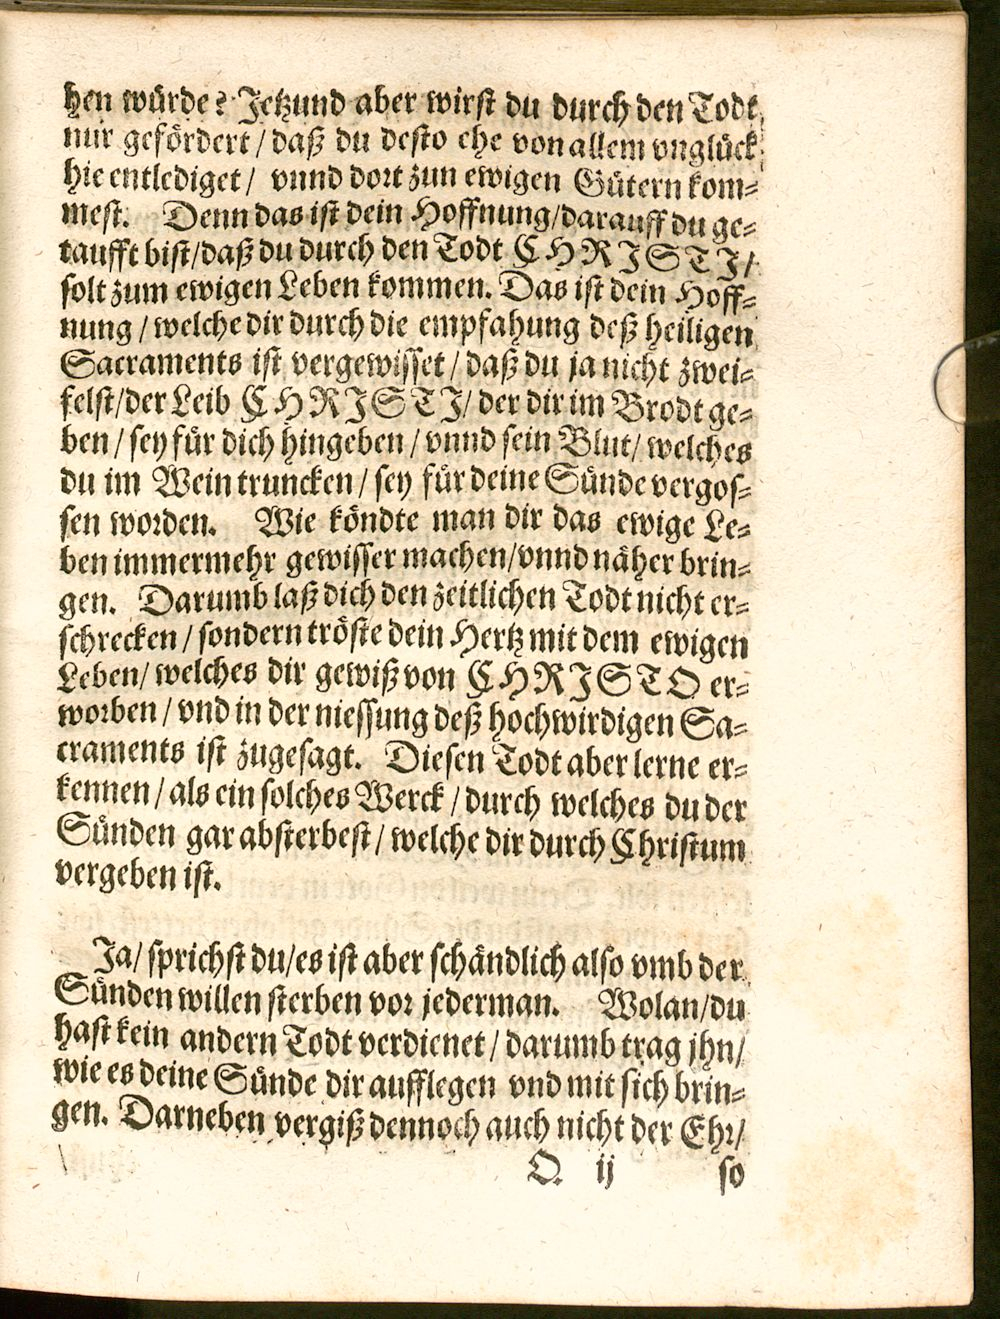 hen würde? Jetzund aber wirst du durch den Todt
nur gefördert / daß du desto ehe von allem vnglück
hie entlediget / vnnd dort zun ewigen Gütern kom⸗
mest. Denn das ist dein Hoffnung/darauff du ge⸗
taufft bist/daß du durch den Todt CHRISTI/
solt zum ewigen Leben kommen. Das ist dein Hoff⸗
nung / welche dir durch die empfahung deß heiligen
Sacraments ist vergewisset / daß du ja nicht zwei⸗
felst/der Leib CHRISTI/ der dir im Brodt ge⸗
ben / sey für dich hingeben / vnnd sein Blut/ welches
du im Wein truncken / sey für deine Sünde vergos⸗
sen worden. Wie köndte man dir das ewige Le⸗
ben immermehr gewisser machen/vnnd näher brin⸗
gen. Darumb laß dich den zeitlichen Todt nicht er⸗
schrecken / sondern tröste dein Hertz mit dem ewigen
Leben/ welches dir gewiß von CHRISTO er⸗
worben / vnd in der niessung deß hochwirdigen Sa⸗
craments ist zugesagt. Diesen Todt aber lerne er⸗
kennen / als ein solches Werck / durch welches du der
Sünden gar absterbest / welche dir durch Christum
vergeben ist.
Ja/ sprichst du/es ist aber schändlich also vmb der
Sünden willen sterben vor jederman. Wolan/du
hast kein andern Todt verdienet / darumb trag jhn/
wie es deine Sünde dir aufflegen vnd mit sich brin⸗
gen. Darneben vergiß dennoch auch nicht der Ehr/
O. ij so